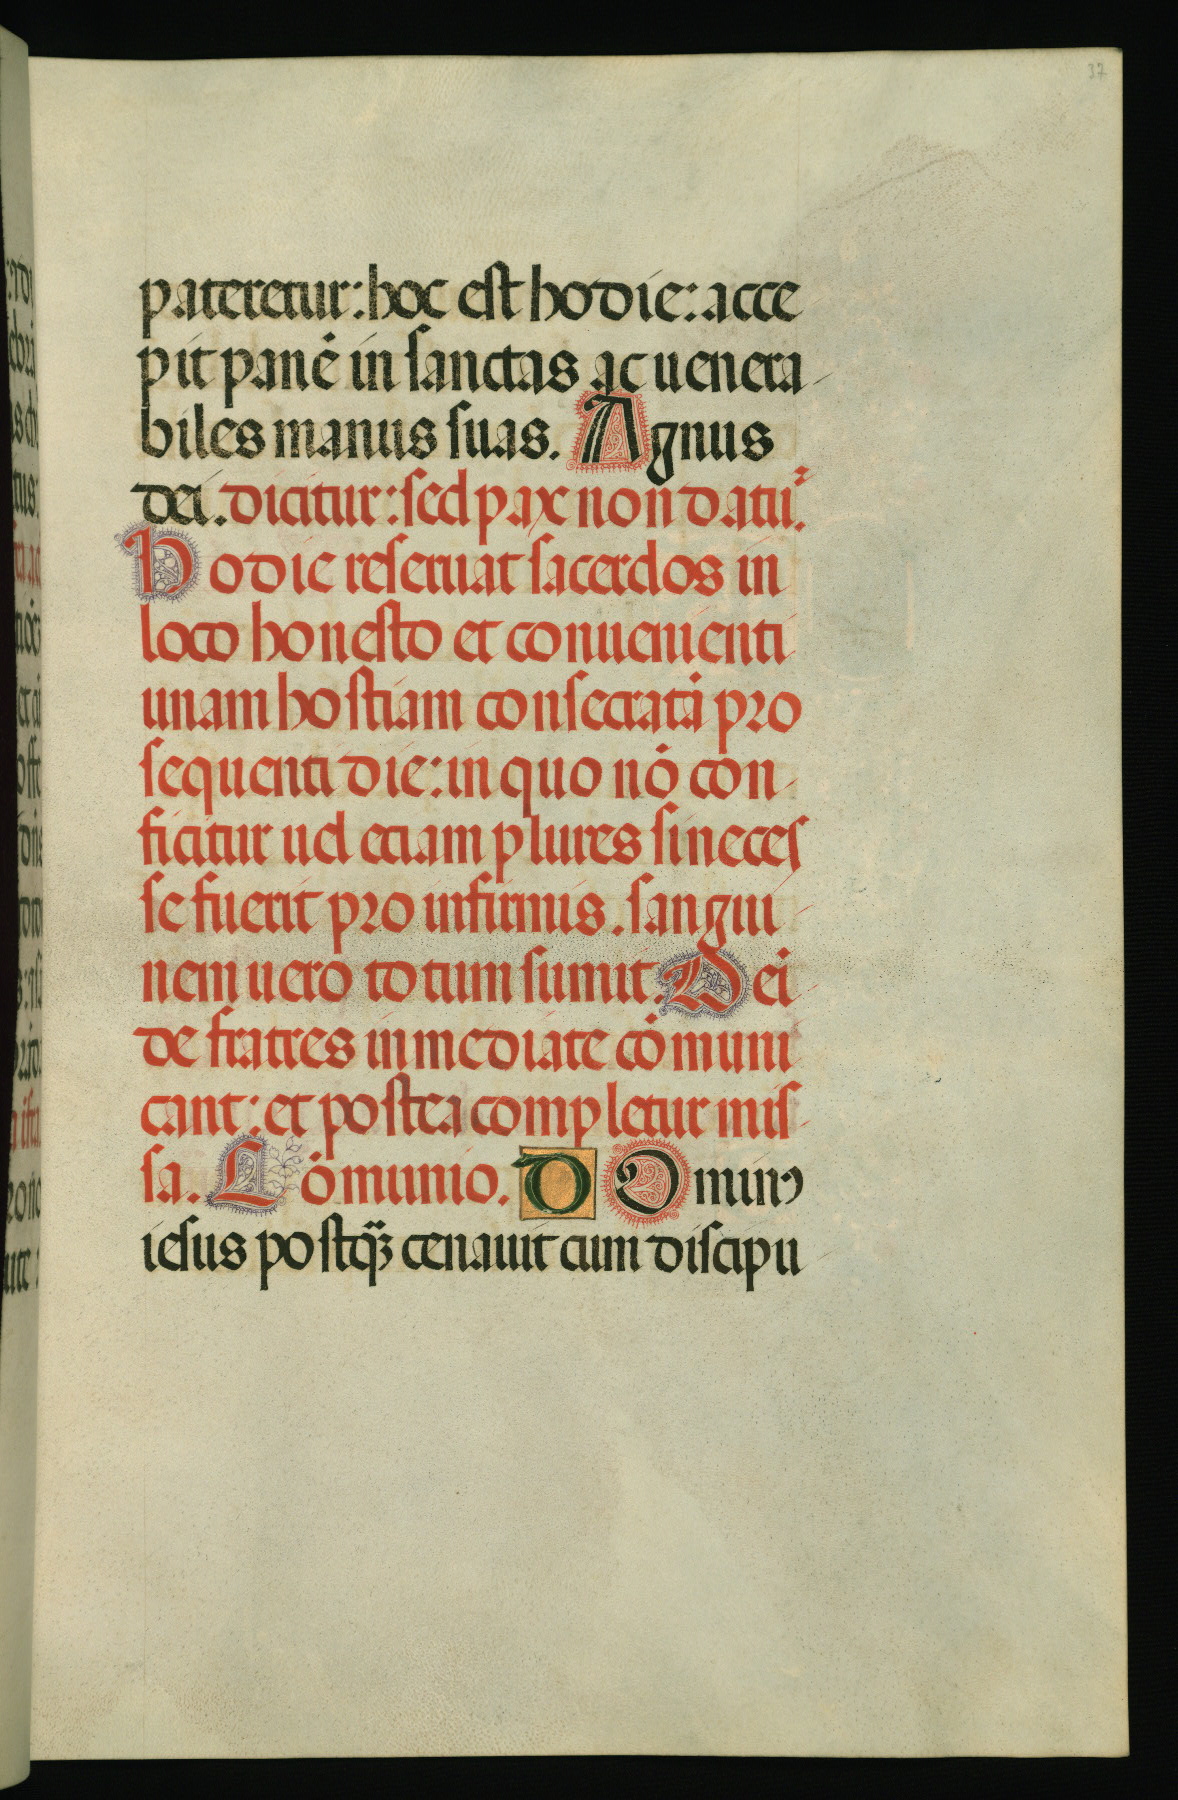 37
pateretur: hoc est hodie: acce
pit panē in sanctas ac uenera
biles manus suas. Agnus
dei. dicitur: sed pax non datuꝛ.
Hodie reseruat sacerdos in
loco honesto et conuenienti
unam hostiam consecratā pro
sequenti die: in quo nō con
ficitur uel eciam plures si neces
se fuerit pro infirmis. sangui
nem uero totum sumit. Dei
de fratres inmediate cōmuni
cant: et postea completur mis
sa. Cōmunio. D Ominꝯ
iesus postqꝫ cenauit cum discipu